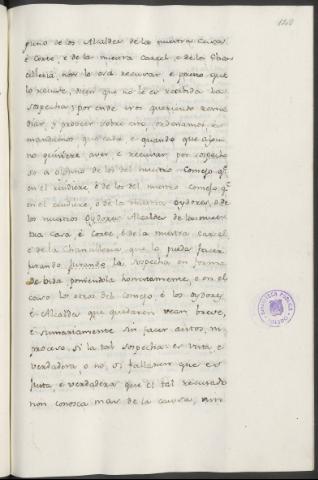 120
guno de los Alcaldes de la nuestra Casa
é Corte, e de la nuestra Carcel, e de los Chan
cilleria, non lo osa recusar, e puesto que
lo recuse, dicen que no le es recevida la
sospecha, y por ende Nos queriendo reme
diar, y proveer sobre esto, ordenamos, é
mandamos, que cada e quando que alguno
no quisiere aver e recusar por sospecho
so a alguno de los del nuestro Consejo q.
en el residiere, ó de los del nuestro Consejo q.
en el residiere, o de la nuestra Oydores, ó de
los nuestros Oydores Alcaldes de la nues
tra Casa, é Corte, é de la nuestra Carcel,
e de la Chancilleria, que lo pueda facer
jurando jurando la sospecha en forma
de bida poniendola honestamente, e en el
caso los otros del Consejo é los oydores,
é Alcaldes que quedaren vean breve,
é sumariamente sin facer autos, ni
proceso si la tal sospecha es justa e
verdadera, o no, si fallaren que es
justa, é verdadera que el tal recusado
non conosca mas de la causa,
BIBLIOTECA PUBLICA
TOLEDO